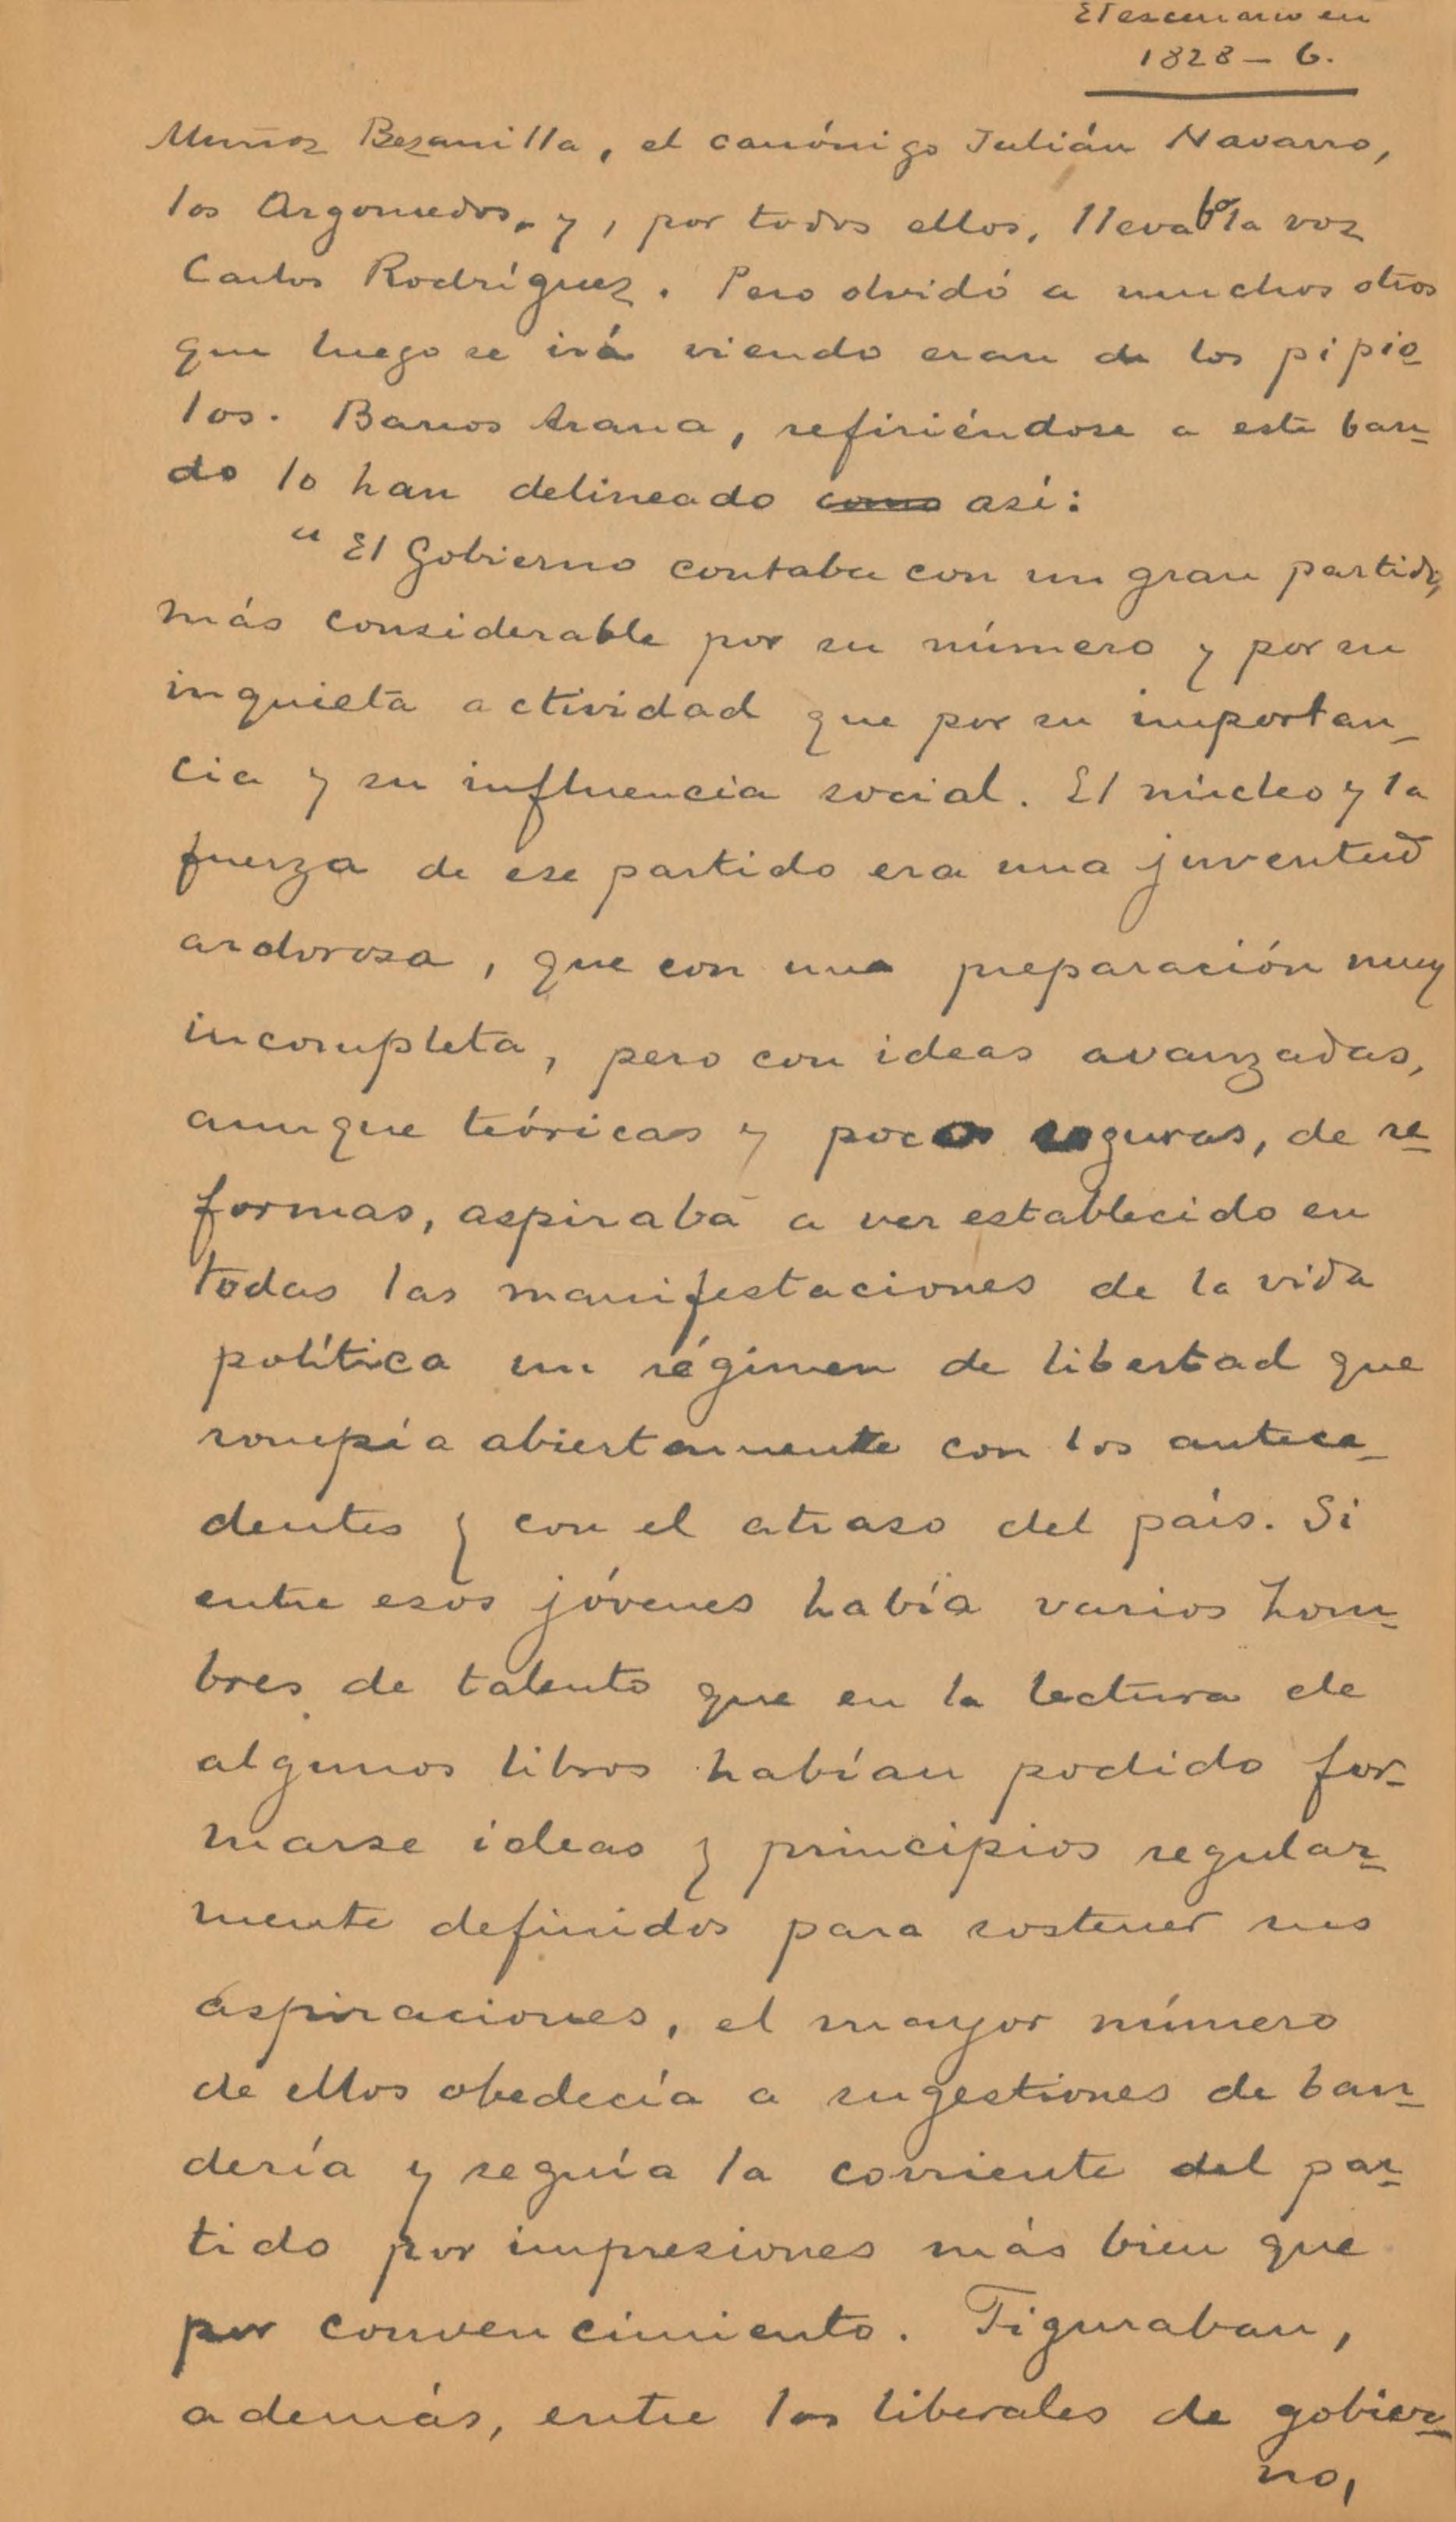 El escenario en
1828 – 6.
Muñoz Bezanilla, el canónigo Julián Navarro,
los Argomedos, y, por todos ellos, llevaba la voz
Carlos Rodríguez. Pero olvidó a muchos otros
que luego se irá viendo eran de los pipio-
los. Barros Arana, refiriéndose a este ban-
do lo han delineado como así:
"El Gobierno contaba con un gran partido,
más considerable por su número y por su
inquieta actividad que por su importan-
cia y su influencia social. El núcleo y la
fuerza de ese partido era una juventud
ardorosa, que con una preparación muy
incompleta, pero con ideas avanzadas,
aunque teóricas y poco seguras, de re-
formas, aspiraba a ver establecido en
todas las manifestaciones de la vida
política un régimen de libertad que
rompía abiertamente con los antece-
dentes y con el atraso del país. Si
entre esos jóvenes había varios hom-
bres de talento que en la lectura de
algunos libros habían podido for-
marse ideas y principios regular-
mente definidos para sostener sus
aspiraciones, el mayor número
de ellos obedecía a sugestiones de ban-
dería y seguía la corriente del par-
tido por impresiones más bien que
por convencimiento. Figuraban,
además, entre los liberales de gobier-
no,